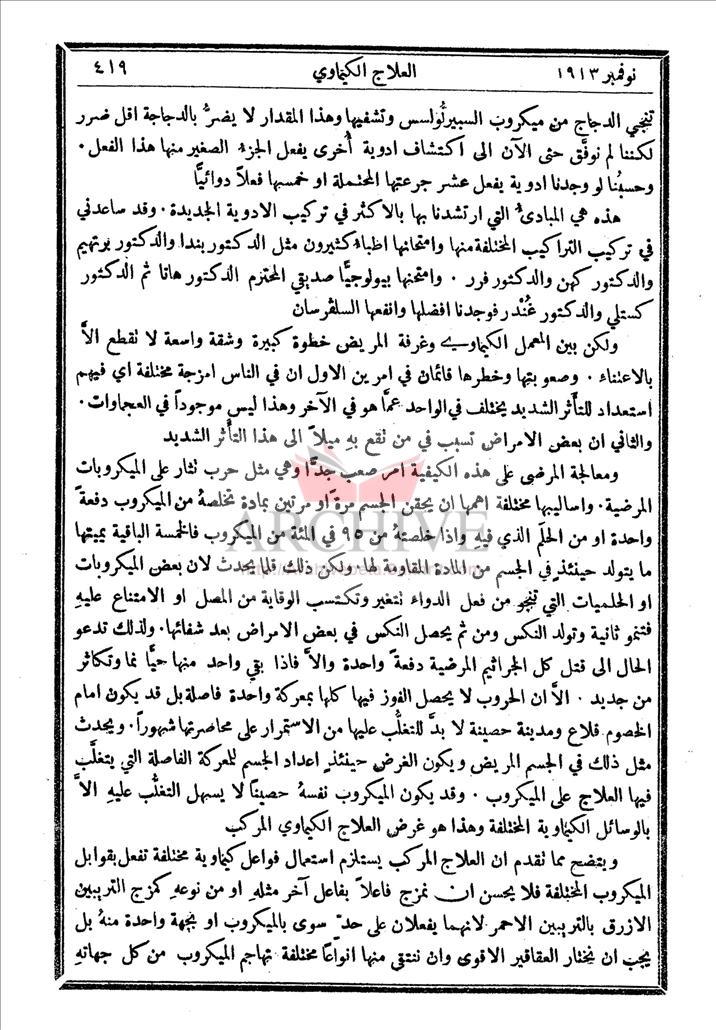 نوفمبر ١٩١٣ العلاج الكيماوي ٤١٩
تنجي الدجاج من ميكروب السبيرلُولسس وتشفيها وهذا المقدار لا يضرُّ بالدجاجة اقل ضرر
لكننا لم نوفَّق حتى الآن الى اكتشاف ادوية أُخرى يفعل الجزءُ الصغير منها هذا الفعل .
وحسبُنا لو وجدنا ادوية يفعل عشر جرعتها المحتملة او خمسها فعلاً دوائيًّا
هذه هي المبادئُ التي ارتشدنا بها بالاكثر في تركيب الادوية الجديدة . وقد ساعدني
في تركيب التراكيب المختلفة منها وامتحانها اطباءُ كثيرون مثل الدكتور بندا والدكتور بوتهيم
والدكتور كهن والدكتور فرر . وامتحنها بيولوجيًّا صديقي المحترم الدكتور هاتا ثم الدكتور
كستلي والدكتور غُندر فوجدنا افضلها وانفعها السلڤرسان
ولكن بين المعمل الكيماوي وغرفة المريض خطوة كبيرة وشقة واسعة لا تقطع الأَّ
بالاعتناء . وصعوبتها وخطرها قائمان في امرين الاول ان في الناس امزجة مختلفة اي فيهم
استعداد للتأثر الشديد يختلف في الواحد عمَّا هو في الآخر وهذا ليس موجوداً في العجاوات .
والثاني ان بعض الامراض تسبب في من تقع بهِ ميلاً الى هذا التأثر الشديد
ومعالجة المرضى على هذه الكيفية امر صعب جدًّا وهي مثل حرب تثار على الميكروبات
المرضية . واساليبها مختلفة اهمها ان يحقن الجسم مرة او مرتين بمادة تخلصهُ من الميكروب دفعةً
واحدة او من الحلَم الذي فيهِ واذا خلصتهُ من ٩٥ في المئة من الميكروب فالخمسة الباقية يميتها
ما يتولد حينئذٍ في الجسم من المادة المقاومة لها . ولكن ذلك قلما يحدث لان بعض الميكروبات
او الحلميات التي تنجو من فعل الدواء نتغير وتكتسب الوقاية من المصل او الامتناع عليهِ
فتنمو ثانية وتولد النكس ومن ثم يحصل النكس في بعض الامراض بعد شفائها . ولذلك تدعو
الحال الى قتل كل الجراثيم المرضية دفعةً واحدة والاَّ فاذا بقي واحد منها حيًّا نما وتكاثر
من جديد . الاَّ ان الحروب لا يحصل الفوز فيها كلها بمعركة واحدة فاصلة بل قد يكون امام
الخصوم قلاع ومدينة حصينة لا بدَّ للتغلُّب عليها من الاستمرار على محاصرتها شهوراً . ويحدث
مثل ذلك في الجسم المريض ويكون الغرض حينئذٍ اعداد الجسم للمعركة الفاصلة التي يتغلَّب
فيها العلاج على الميكروب . وقد يكون الميكروب نفسهُ حصيناً لا يسهل التغلُّب عليهِ الاَّ
بالوسائل الكيماوية المختلفة وهذا هو غرض العلاج الكيماوي المركب
ويتضح مما تقدم ان العلاج المركب يستلزم استعمال فواعل كيماوية مختلفة تفعل بقوابل
الميكروب المختلفة فلا يحسن ان نمزج فاعلاً بفاعل آخر مثلهِ او من نوعهِ كمزج التريبين
الازرق بالتريبين الاحمر لانهما يفعلان على حدٍّ سوى بالميكروب او بجهة واحدة منهُ بل
يجب ان نختار العقاقير الاقوى وان ننتقي منها انواعاً مختلفة تهاجم الميكروب من كل جهاتهِ
ARCHIVE